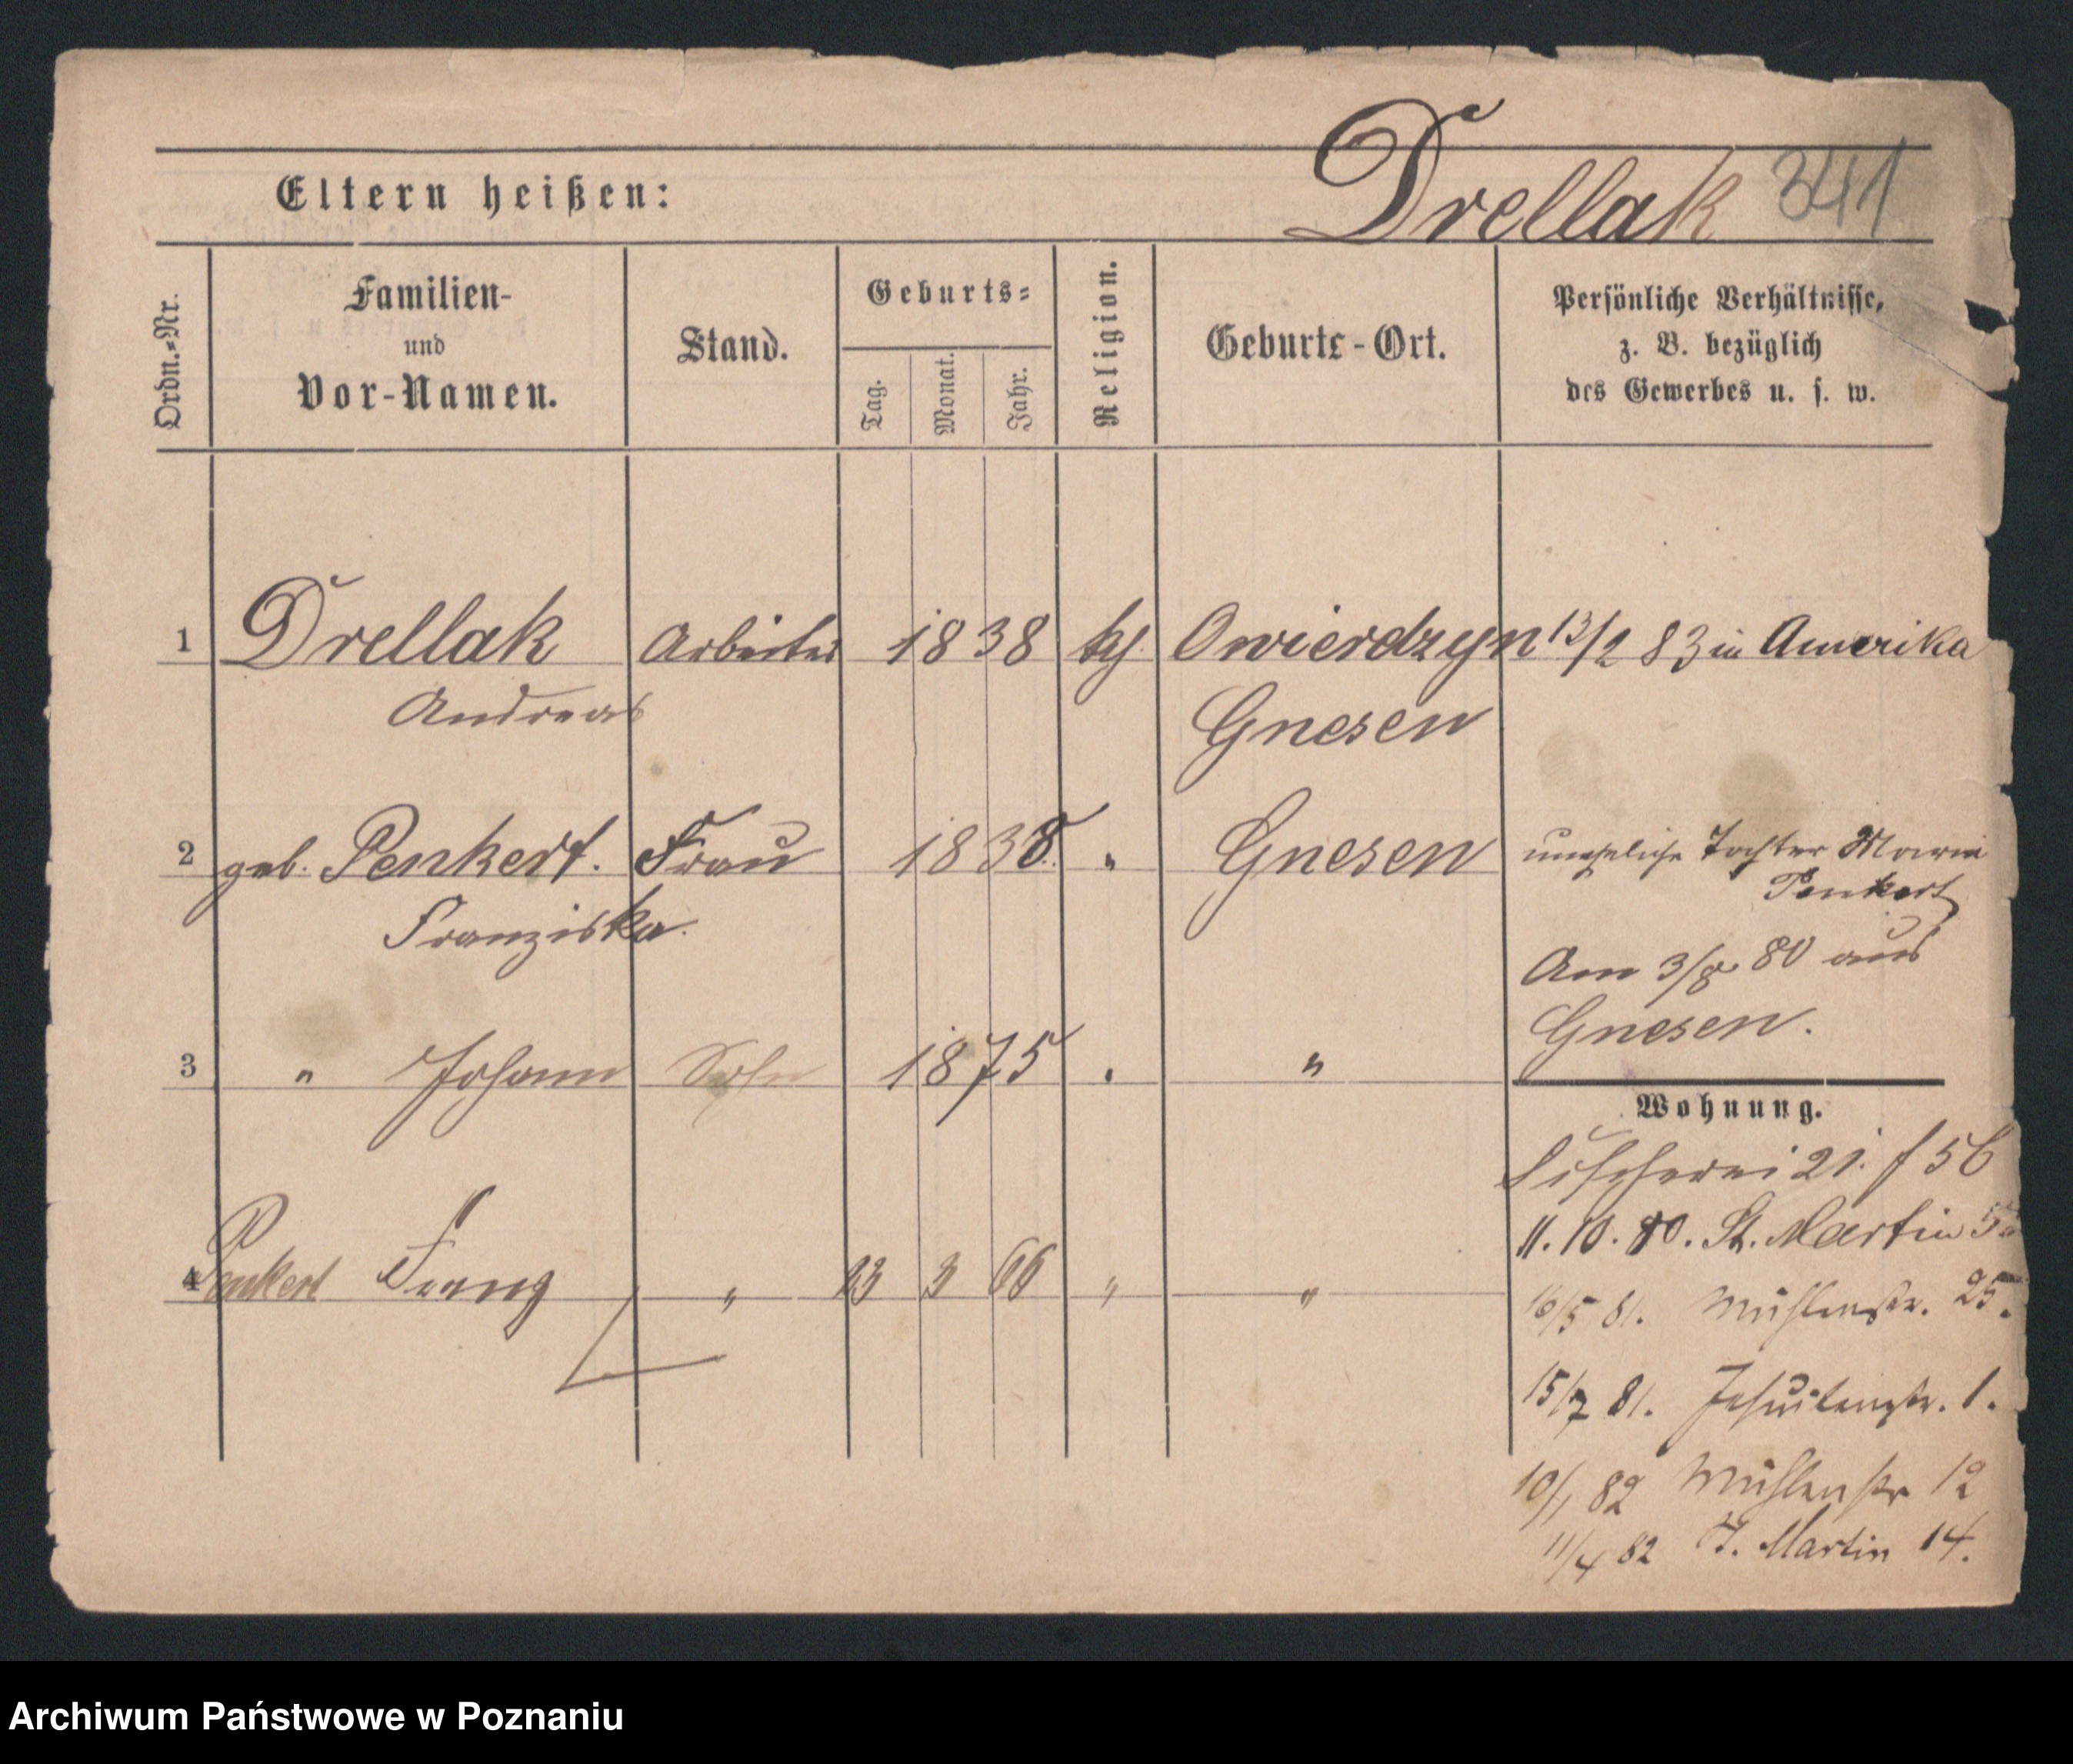 Drellak 341
Eltern heißen:
Ordn.-Nr.
Familien-
und
Vor-Namen.
Stand.
Geburts-
Tag.
Monat.
Jahr.
Religion.
Geburts-Ort.
Persönliche Verhältnisse,
z. B. bezüglich
des Gewerbes u. s. w.
1 Drellak Arbeiter 1838 kth. Owierdzyn 13/2 83 in Amerika
Andreas Gnesen
2 geb. Penkert. Frau 1838. " Gnesen uneheliche Tochter Maria
Penkert
Franziska.
Am 3/8 80 aus
Gnesen.
3 " Johann Sohn 1875 " "
Wohnung.
Fischerei 21. f 56
11. 10. 80. St. Martin
4 Penkert Franz " 23 3 66 " "
16/5 81. Mühlenstr. 25.
15/7 81. Jesuitenstr. 1.
10/1 82 Mühlenstr 12
11/4 82 St. Martin 14.
Archiwum Państwowe w Poznaniu